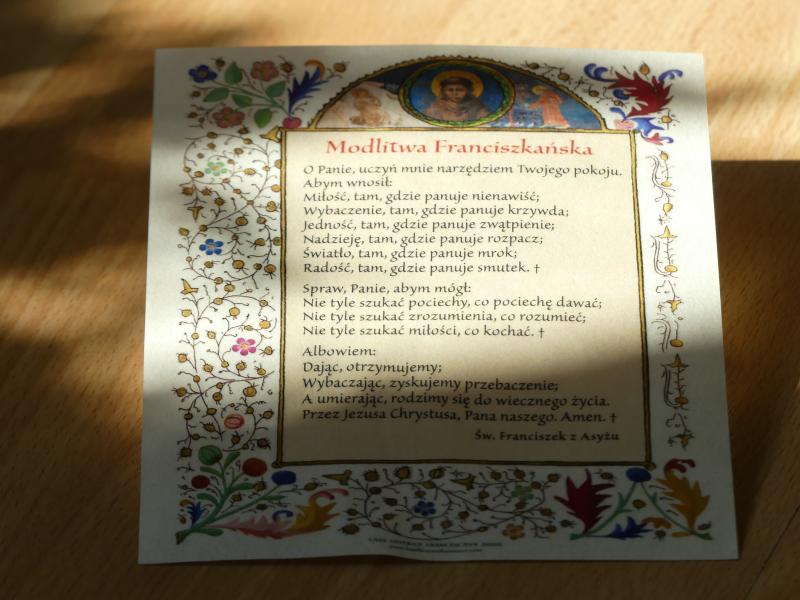 Modlitwa Franciszkańska
O Panie, uczyń mnie narzędziem Twojego pokoju.
Abym wnosił:
Miłość, tam, gdzie panuje nienawiść;
Wybaczenie, tam, gdzie panuje krzywda;
Jedność, tam, gdzie panuje zwątpienie;
Nadzieję, tam, gdzie panuje rozpacz;
Światło, tam, gdzie panuje mrok;
Radość, tam, gdzie panuje smutek. †
Spraw, Panie, abym mógł:
Nie tyle szukać pociechy, co pociechę dawać;
Nie tyle szukać zrozumienia, co rozumieć;
Nie tyle szukać miłości, co kochać. †
Albowiem:
Dając, otrzymujemy;
Wybaczając, zyskujemy przebaczenie;
A umierając, rodzimy się do wiecznego życia.
Przez Jezusa Chrystusa, Pana naszego. Amen. †
Św. Franciszek z Asyżu